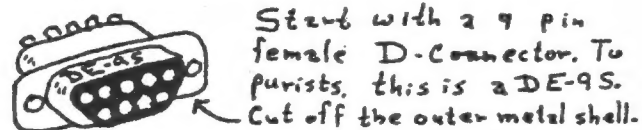 DE-9S
Start with a 9 pin
female D-Connector. To
purists, this is a DE-9S.
Cut off the outer metal shell.